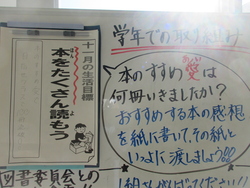 学年での取り組み
十一月の生活目標
本をたくさん読もう
本のすすめ愛は
何冊いきましたか?
おすすめする本の感想
を紙に書いて、その紙と
いっしょに渡しましょう!!!
図書委員会との